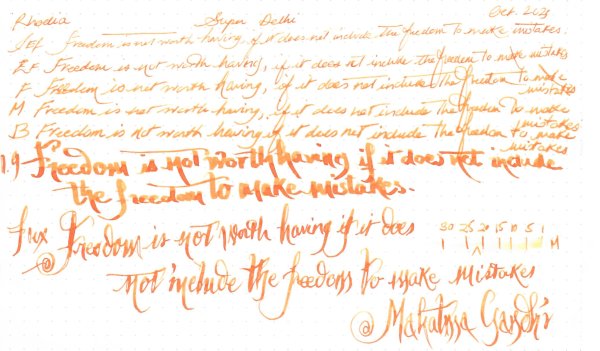 Rhodia Super Delhi Oct 2023
JEF Freedom is not worth having, if it does not include the freedom to make mistakes.
EF Freedom is not worth having, if it does not include the freedom to make mistakes
F Freedom is not worth having, if it does not include the freedom to make mistakes
M Freedom is not worth having, if it does not include the freedom to make mistakes
B Freedom is not worth having if it does not include the freedom to make mistakes
1.9 Freedom is not worth having if it does not include
the freedom to make mistakes.
Flex Freedom is not worth having if it does
30 25 20 15 10 5 1
M
@
not include the freedom to make mistakes
@ Mahatma Gandhi